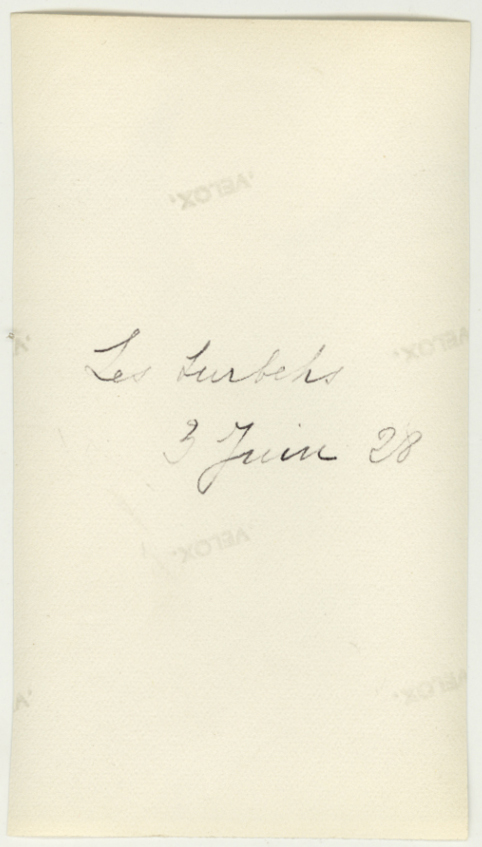 VELOX
VELOX
Les turbehs
3 Juin 28
VELOX
VELOX